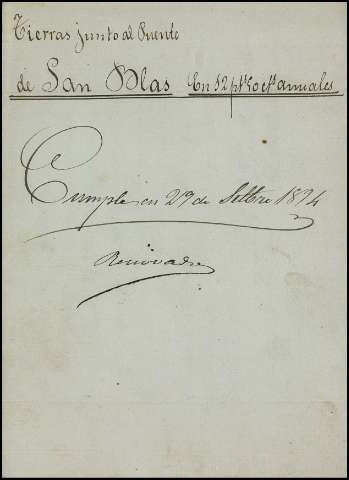 Tierras junto al Puente
de San Blas En 52 pts 50 cts anuales
Cumple en 29 de Setbre 1894
Renovado